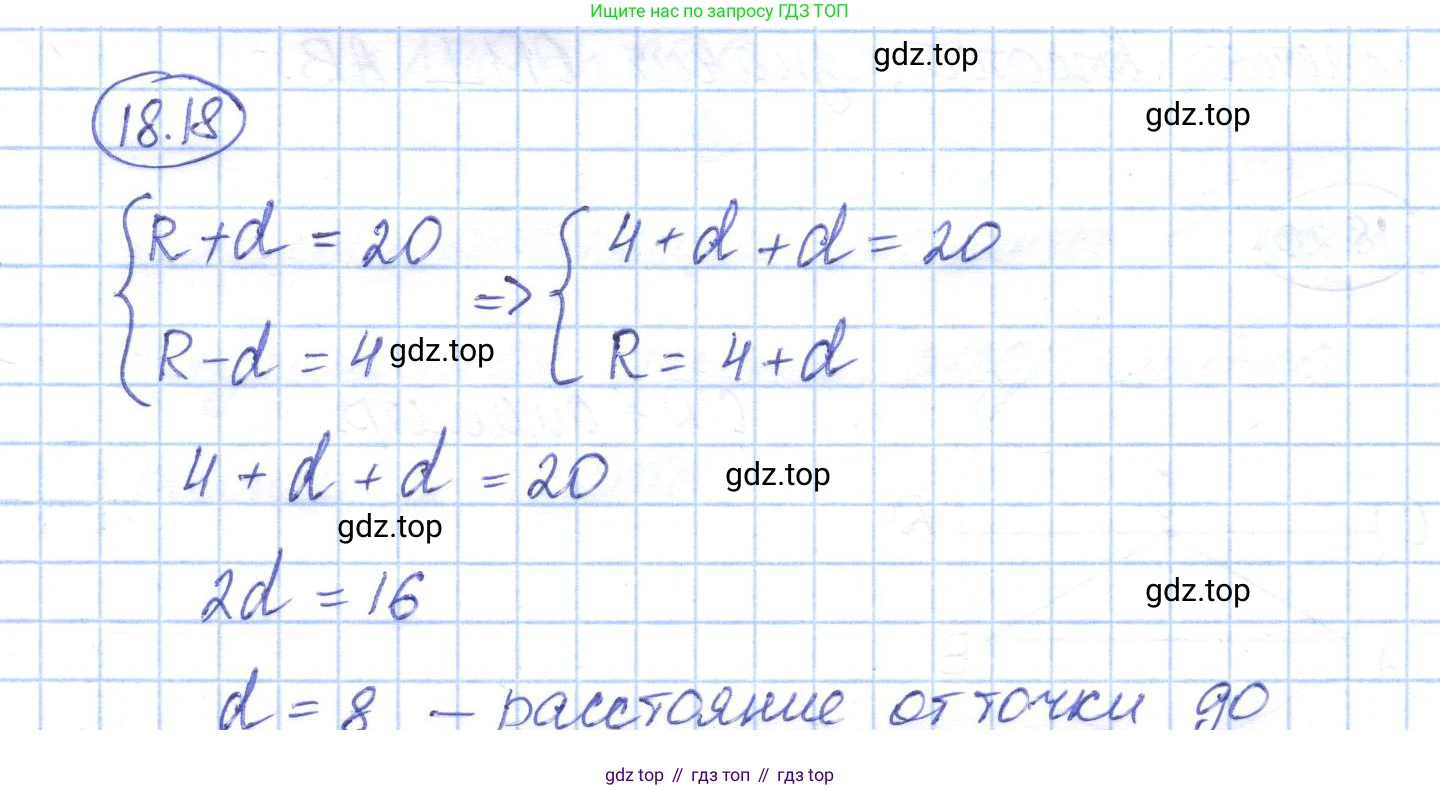 Ищите нас по запросу ГДЗ ТОП
gdz.top
gdz.top
18.18
R + d = 20
4 + d + d = 20
=>
R - d = 4
gdz.top
R = 4 + d
4 + d + d = 20
gdz.top
gdz.top
2d = 16
gdz.top
d = 8 — расстояние от точки до
gdz top // гдз топ // гдз top